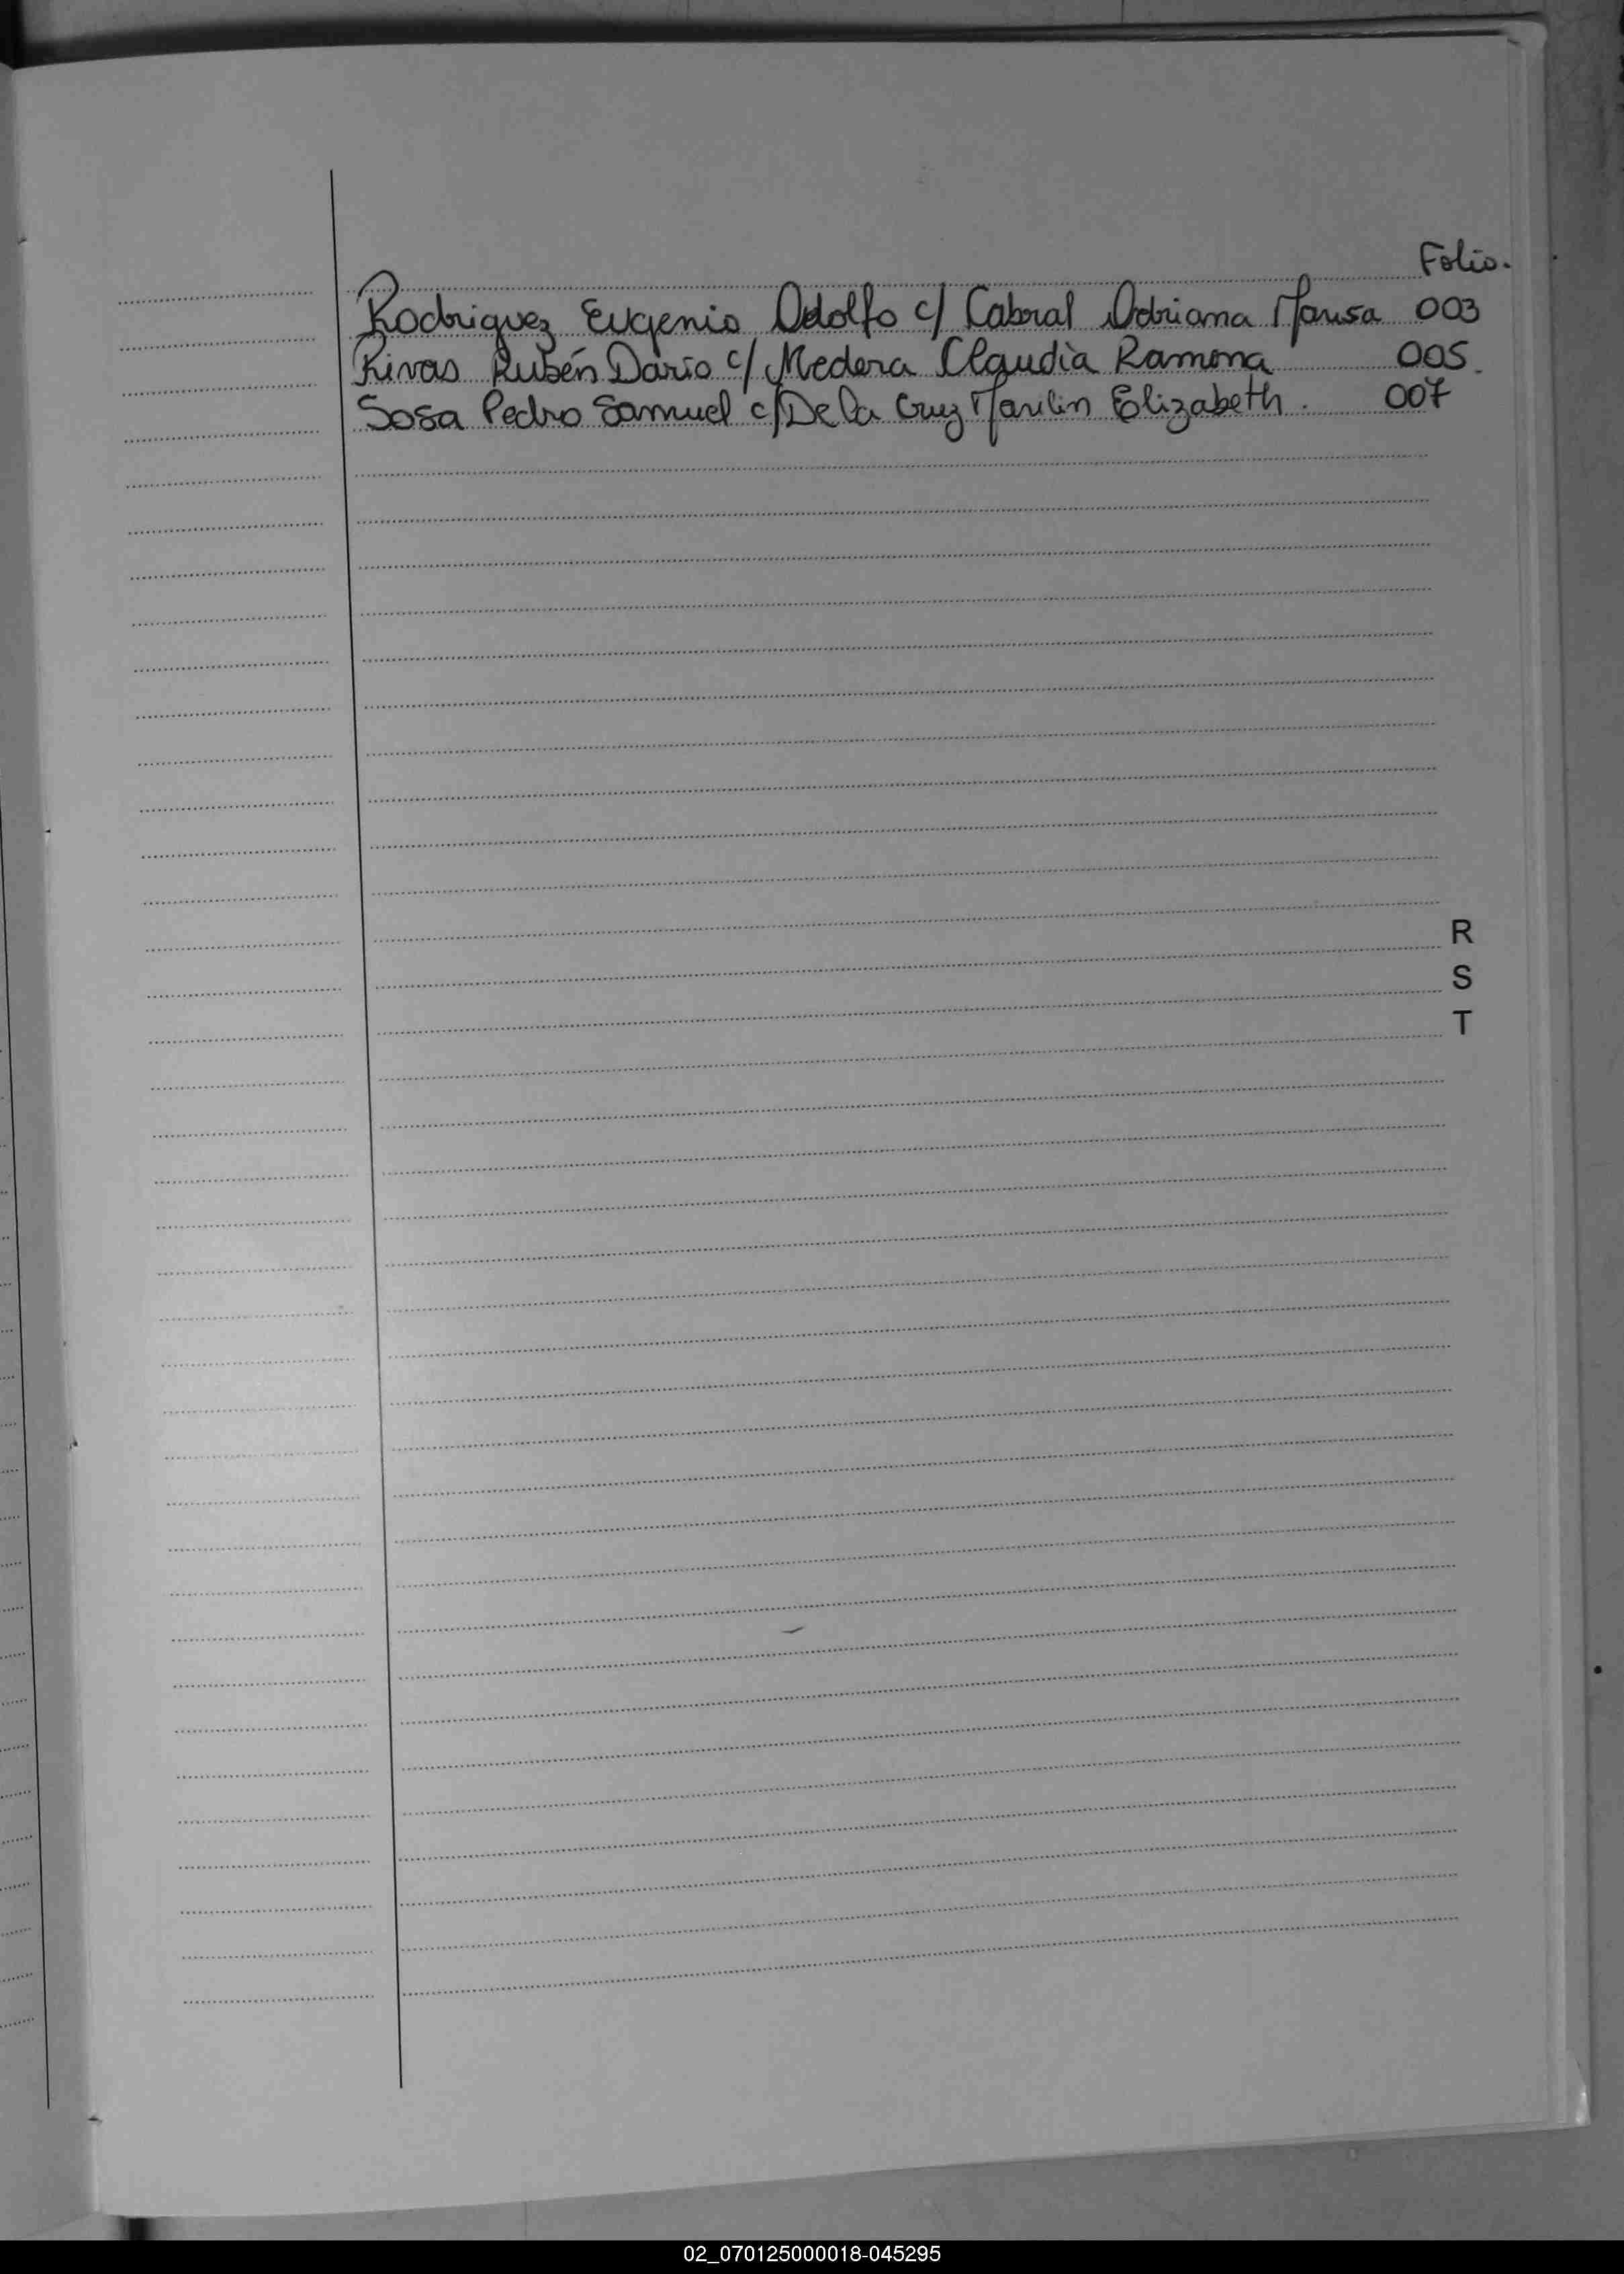 Folio.
Rodriguez Eugenio Adolfo c/ Cabral Adriana Marisa 003
Rivas Rubén Dario c/ Medera Claudia Ramona 005.
Sosa Pedro Samuel c/ De la Cruz Marilin Elizabeth. 007
R
S
T
02_070125000018-045295